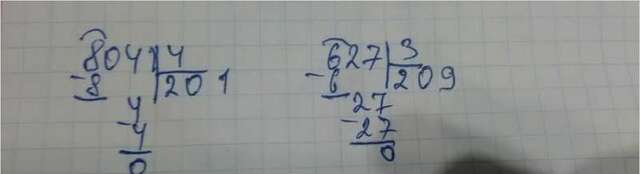 804 4
-8 201
4
-4
0
627 3
-6 209
27
-27
0